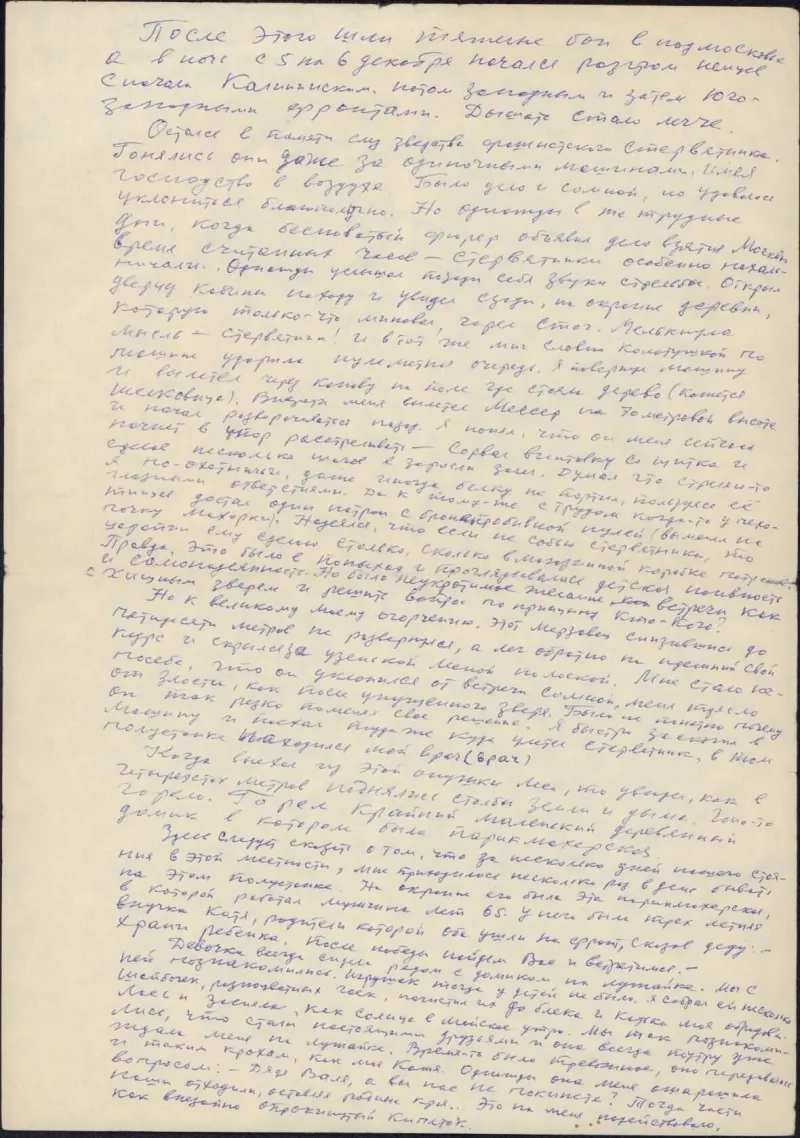 После этого шли тяжелые бои в подмосковье
а в ночь с 5 на 6 декабря начался разгром немцев
сначала Калининским. потом западным и затем Юго-
западными фронтами. Дышать стало легче.
Остался в памяти след зверства фашистского стервятника.
Гонялись они даже за одиночными машинами. Имея
господство в воздухе. Было дело и со мной, но удавалось
уклониться благополучно. Но однажды в те трудные
дни, когда бесноватый фюрер объявил дело взятия Москвы
время считанных часов — стервятники особенно нахаль-
ничали. Однажды услышал позади себя звуки стрельбы. Открыл
дверцу кабины на ходу и увидел сзади, на окраине деревни,
которую только-что миновал, горел стог. Мелькнула
мысль — стервятник! и в тот же миг словно колотушкой по
машине ударила пулеметная очередь. Я повернул машину
и вылетел через канаву на поле где стояло дерево (кажется
шелковица). Впереди меня вылетел Мессер на 70 метровой высоте
и начал разворачиваться назад. Я понял, что он меня сейчас
начнет в упор расстреливать — Сорвал винтовку со щитка и
сделал несколько шагов в заросли залег. Думал что стреляю-то
я по-охотничьи, даже иногда белку не портил, пользуясь её
глазными отверстиями. Да к тому-же с трудом когда-то у пехо-
тинцев достал один патрон с бронебройной пулей (выменял на
пачку махорки). Надеялся, что если не собью стервятника, то
царапин ему сделаю столько, сколько в магазинной коробке патронов.
Правда, это было в попыхах и проглядывалась детская наивность
и самонадеянность. Но было неукротимое желание встречи как
с хищным зверем и решить вопрос по принципу Кто-Кого?
Но к великому моему огорчению. Этот мерзавец снизившись до
пятидесяти метров не развернулся, а лег обратно на прежний свой
курс и скрылся за узенькой лесной полоской. Мне стало не-
посебе, что он уклонился от встречи со мной, меня трясло
от злости, как после упущенного зверя. Было не понятно почему
он так резко поменял свое решение. Я быстро заскочил в
машину и поехал туда же куда улетел стервятник, в том
полустанке находился мой врач (врач)
Когда выехал из этой опушки леса, то увидел, как в
четырехстах метров поднялись столбы земли и дыма. Что-то
горело. Горел крайний маленький деревянный
домик в котором была парикмахерская
Здесь следует сказать о том, что за несколько дней нашего стоя-
ния в этой местности, мне приходилось несколько раз в день бывать
на этом полустанке. На окраине его была эта парикмахерская,
в которой работал мужчина лет 65. У него была трех летняя
внучка Катя, родители которой оба ушли на фронт, сказав деду: —
Храни ребенка. После победы найдем Вас и встретимся. —
Девочка всегда сидела рядом с домиком на лужайке. Мы с
ней познакомились. Игрушек тогда у детей не было. Я собрал ей несколько
шайбочек, разноцветных гаек, почистил их до блеска и Катька моя обрадова-
лась и засияла, как солнце в майское утро. Мы так познакоми-
лись, что стали настоящими друзьями и она всегда поутру уже
ждала меня на лужайке. Время-то было тревожное, оно передавалось
и таким крохам, как моя Катя. Однажды она меня ошарашила
вопросом: — Дядя Валя, а вы нас не покинете? Тогда части
наши отходили, оставляя родные края... Это на меня подействовало,
как внезапно опрокинутый кипяток.